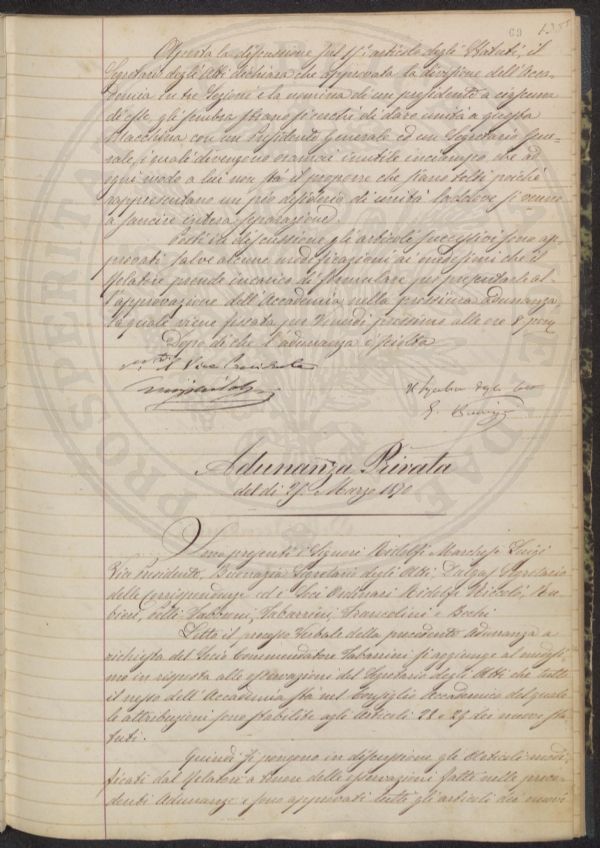 69 135
Aperta la discussione sul 15° articolo degli Statuti, il
Segretario degli Atti dichiara che approvata la divisione dell'Acca-
demia in tre Sezioni e la nomina di un presidente a ciascuna
di esse gli sembra strano si cerchi di dare unità a questa
Macchina con un Presidente Generale ed un Segretario Gene-
rale, i quali divengono oramai inutile inciampo, che ad
ogni modo a lui non sta il proporre che siano tolti poichè
rappresentano un pio desiderio di unità laddove si venne
a sancire intera separazione.
Posti in discussione gli articoli successivi sono ap-
provati salve alcune modificazioni ai medesimi che il
Relatore prende incarico di formulare per presentarle al
l'approvazione dell'Accademia nella prossima adunanza
la quale viene fissata per Venerdì prossimo alle ore 8 pom
Dopo di che l'adunanza è sciolta
Il Vice Presidente
Il Segretario degli Atti
Adunanza Privata
del dì 25 Marzo 1870
Sono presenti i Signori Ridolfi Marchese Luigi
Vice Presidente, Buonazia Segretario degli Atti, Dalgas Segretario
delle Corrispondenze ed i Soci Ordinari Ridolfi Niccolò, Ru-
bieri, Pelli Fabbroni, Tabarrini, Francolini e Bechi
Letto il processo Verbale della precedente Adunanza a
richiesta del Socio Commendatore Tabarrini si aggiunge al medesi-
mo in risposta alle osservazioni del Segretario degli Atti che tutto
il nesso dell'Accademia stà nel Consiglio Accademico del quale
le attribuzioni sono stabilite agli Articoli 28 e 29 dei nuovi Sta-
tuti.
Quindi si pongono in discussione gli Articoli modi-
ficati dal Relatore a tenore delle osservazioni fatte nelle prece-
denti Adunanze e sono approvati tutti gli articoli dei nuovi
PROSPERITATI